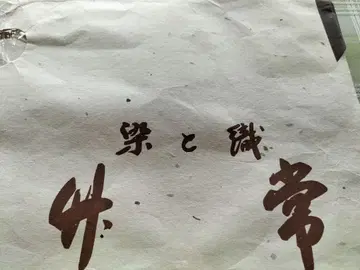 染と織
常